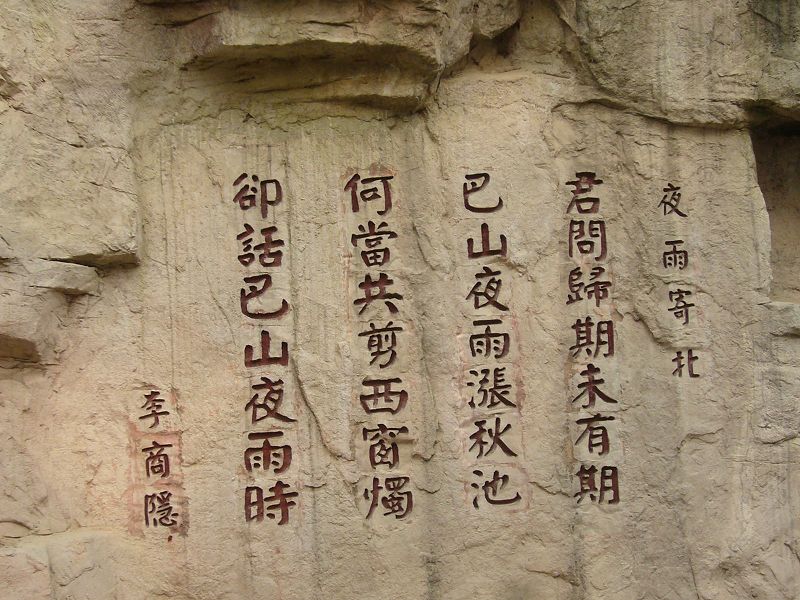 夜雨寄北
君問歸期未有期
巴山夜雨漲秋池
何當共剪西窗燭
卻話巴山夜雨時
李商隱